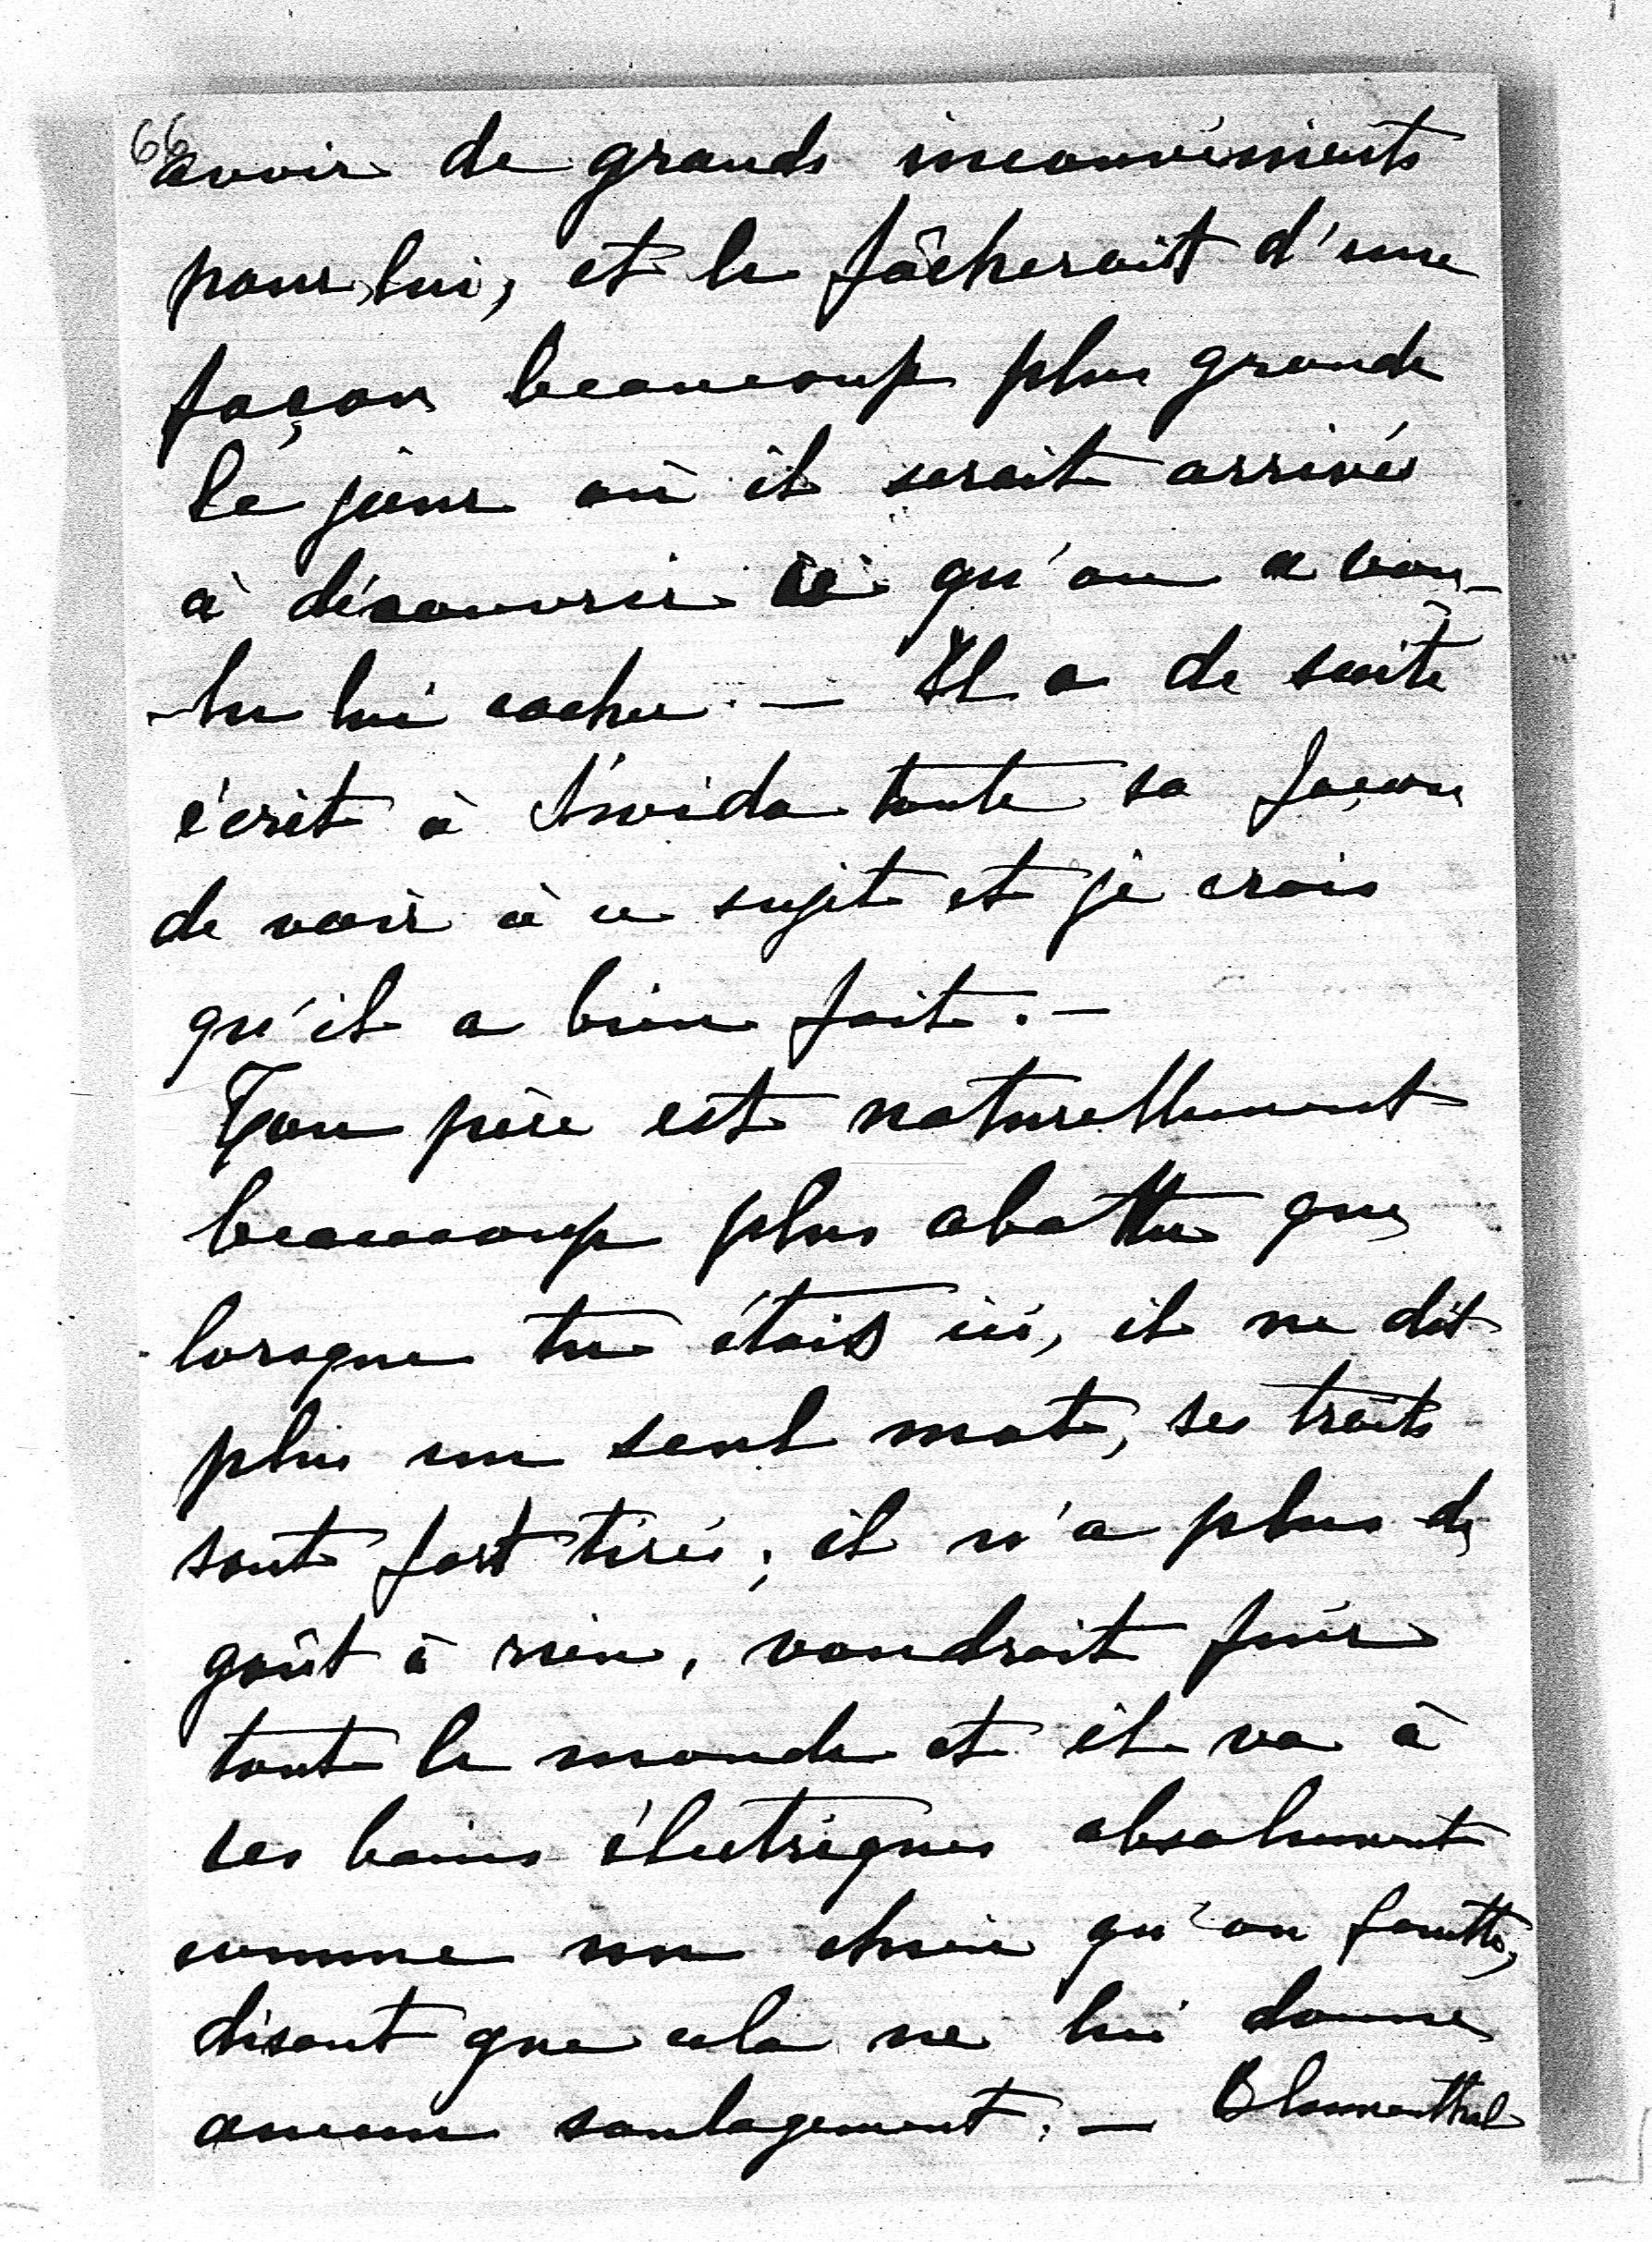 66
avoir de grands inconvénients
pour lui, et le fâcherait d'une
façon beaucoup plus grande
le jour où il serait arrivé
à découvrir ce qu'on a vou-
-lu lui cacher. — Il a de suite
écrit à toute sa façon
de voir à ce sujet et je crois
qu'il a bien fait. —
Ton père est naturellement
beaucoup plus abattu que
lorsque tu étais ici, il ne dit
plus un seul mot, ses traits
sont fort tirés; il n'a plus de
goût à rien, voudrait fuir
tout le monde et il va à
ses bains électriques absolument
comme un chien qu'on fouette,
disant que cela ne lui donne
aucun soulagement. — Blumenthal